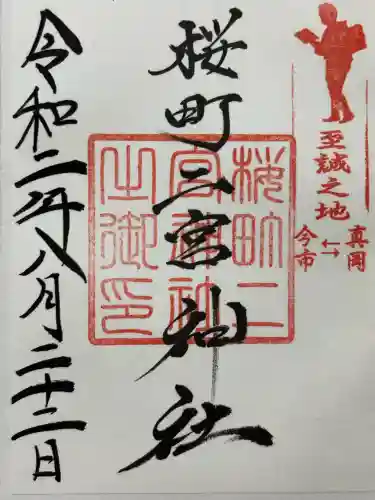 至誠之地
真岡
↔
今市
桜町二宮神社
桜町二
宮神社
之御印
令和二年八月二十二日